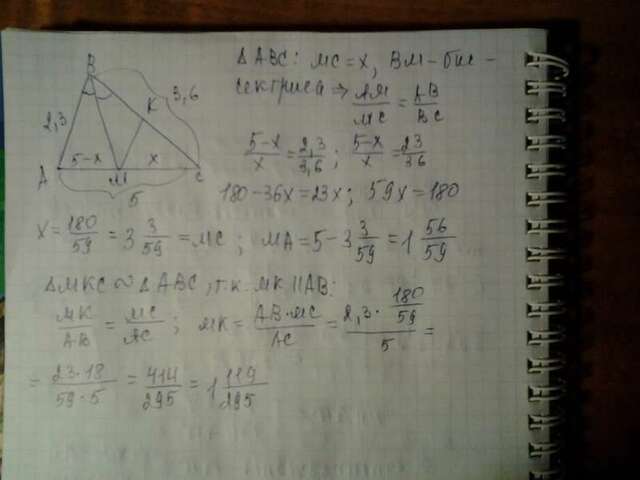 B
K
3,6
2,3
5-x
x
A
M
C
5
Δ ABC: MC = x, BM - бис-
сектриса ⇒ AM/MC = AB/BC
5-x/x = 2,3/3,6 ; 5-x/x = 23/36
180-36x=23x; 59x=180
x = 180/59 = 3 3/59 = MC ; MA = 5-3 3/59 = 1 56/59
Δ MKC ∾ Δ ABC, т.к. MK || AB:
MK/AB = MC/AC ; MK = AB·MC/AC = 2,3 · 180/59 / 5 =
= 23·18/59·5 = 414/295 = 1 119/295